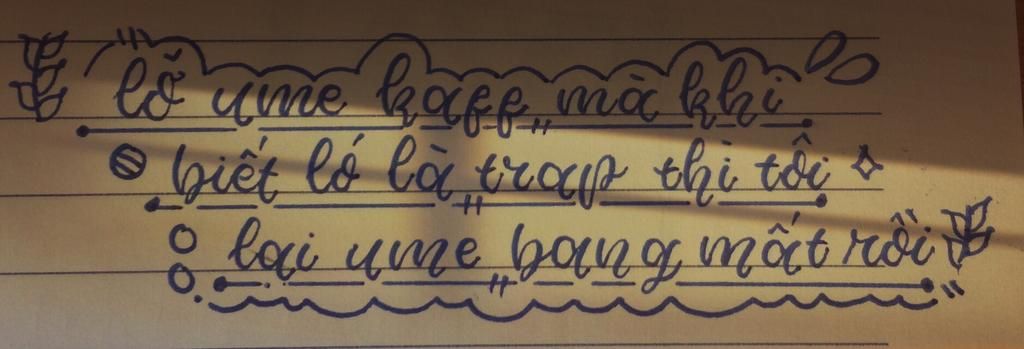 lỡ ume kaff mà khi
biết ló là trap thì tôi
lại ume bang mất rồi